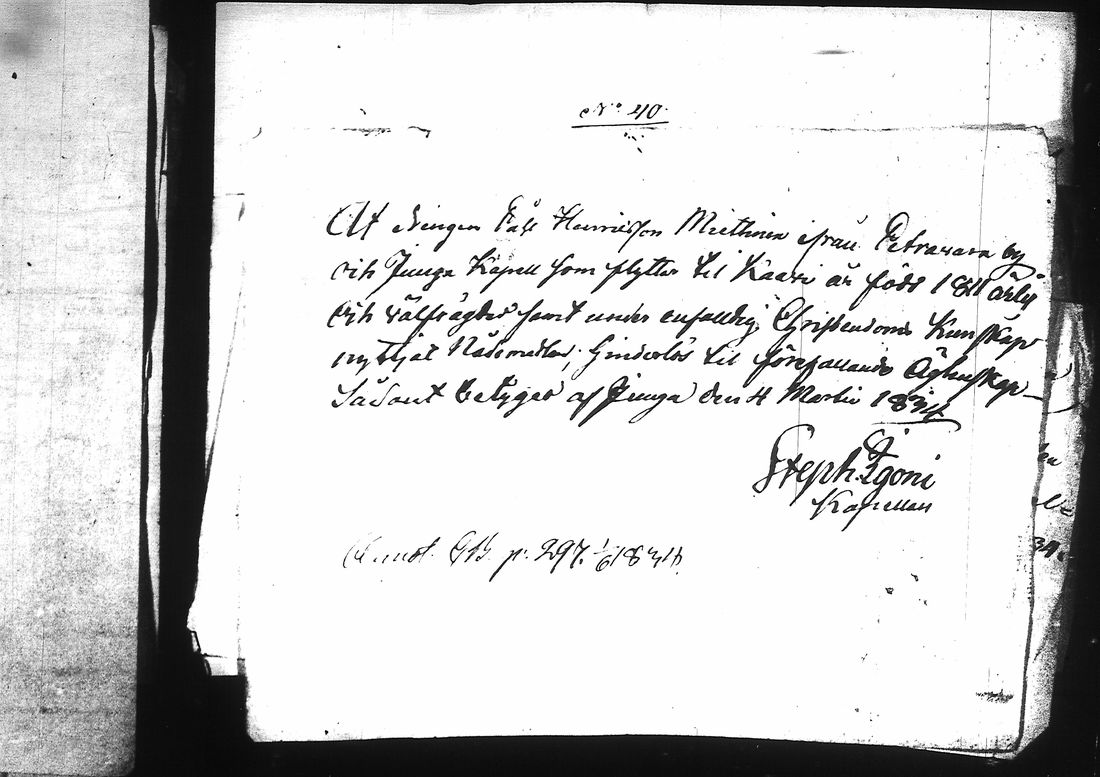 No 40.
At drengen Påhl Henricsson Miettinen ifrån Petravara by
och Juuga Kapell som flyttar til Kaavi är född 1811 ärlig
och välfrägdad samt under enfaldig Christendoms Kunskap
nyttjat Nådemedlen; hinderlös til förefallande Ägtenskap
Sådant betygar af Juuga den 4 Martii 1834
Steph. Igoni
Kapellan
Annot. CB. p. 297. 1/6 1834.